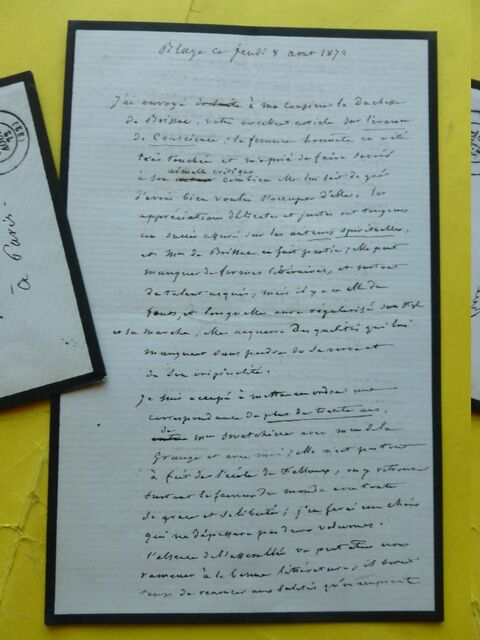 Blaye ce Jeudi 8 aout 1872
J'ai envoyé de suite à ma cousine la Duchesse
de Brissac votre excellent article sur l'examen
de Conscience; la femme honnête en a été
très touchée et m'a prié de faire savoir
à son aimable critique combien elle lui sait de gré
d'avoir bien voulu s'occuper d'elle. Vos
appréciations délicates et justes ont toujours
un succès assuré sur les auteurs spirituelles,
et Mme de Brissac en fait partie; elle peut
manquer de formes littéraires, et surtout
de talent acquis, mais il y a en elle du
fonds, et lorsqu'elle aura régularisé son style
et sa marche, elle acquerra des qualités qui lui
manquent sans perdre de sa verve et
de son originalité.
Je suis occupé à mettre en ordre une
correspondance de plus de trente ans,
de Mme Swetchine avec Mme de la
Grange et avec moi; elle n'est pas tout
à fait de l'école de Falloux, on y retrouve
surtout la femme du monde avec toute
sa grace et sa liberté; j'en ferai un choix
qui ne dépassera pas deux volumes.
L'absence de l'assemblée va peut être nous
ramener à la bonne littérature; il serait
temps de renoncer aux saletés qu'on
à Paris